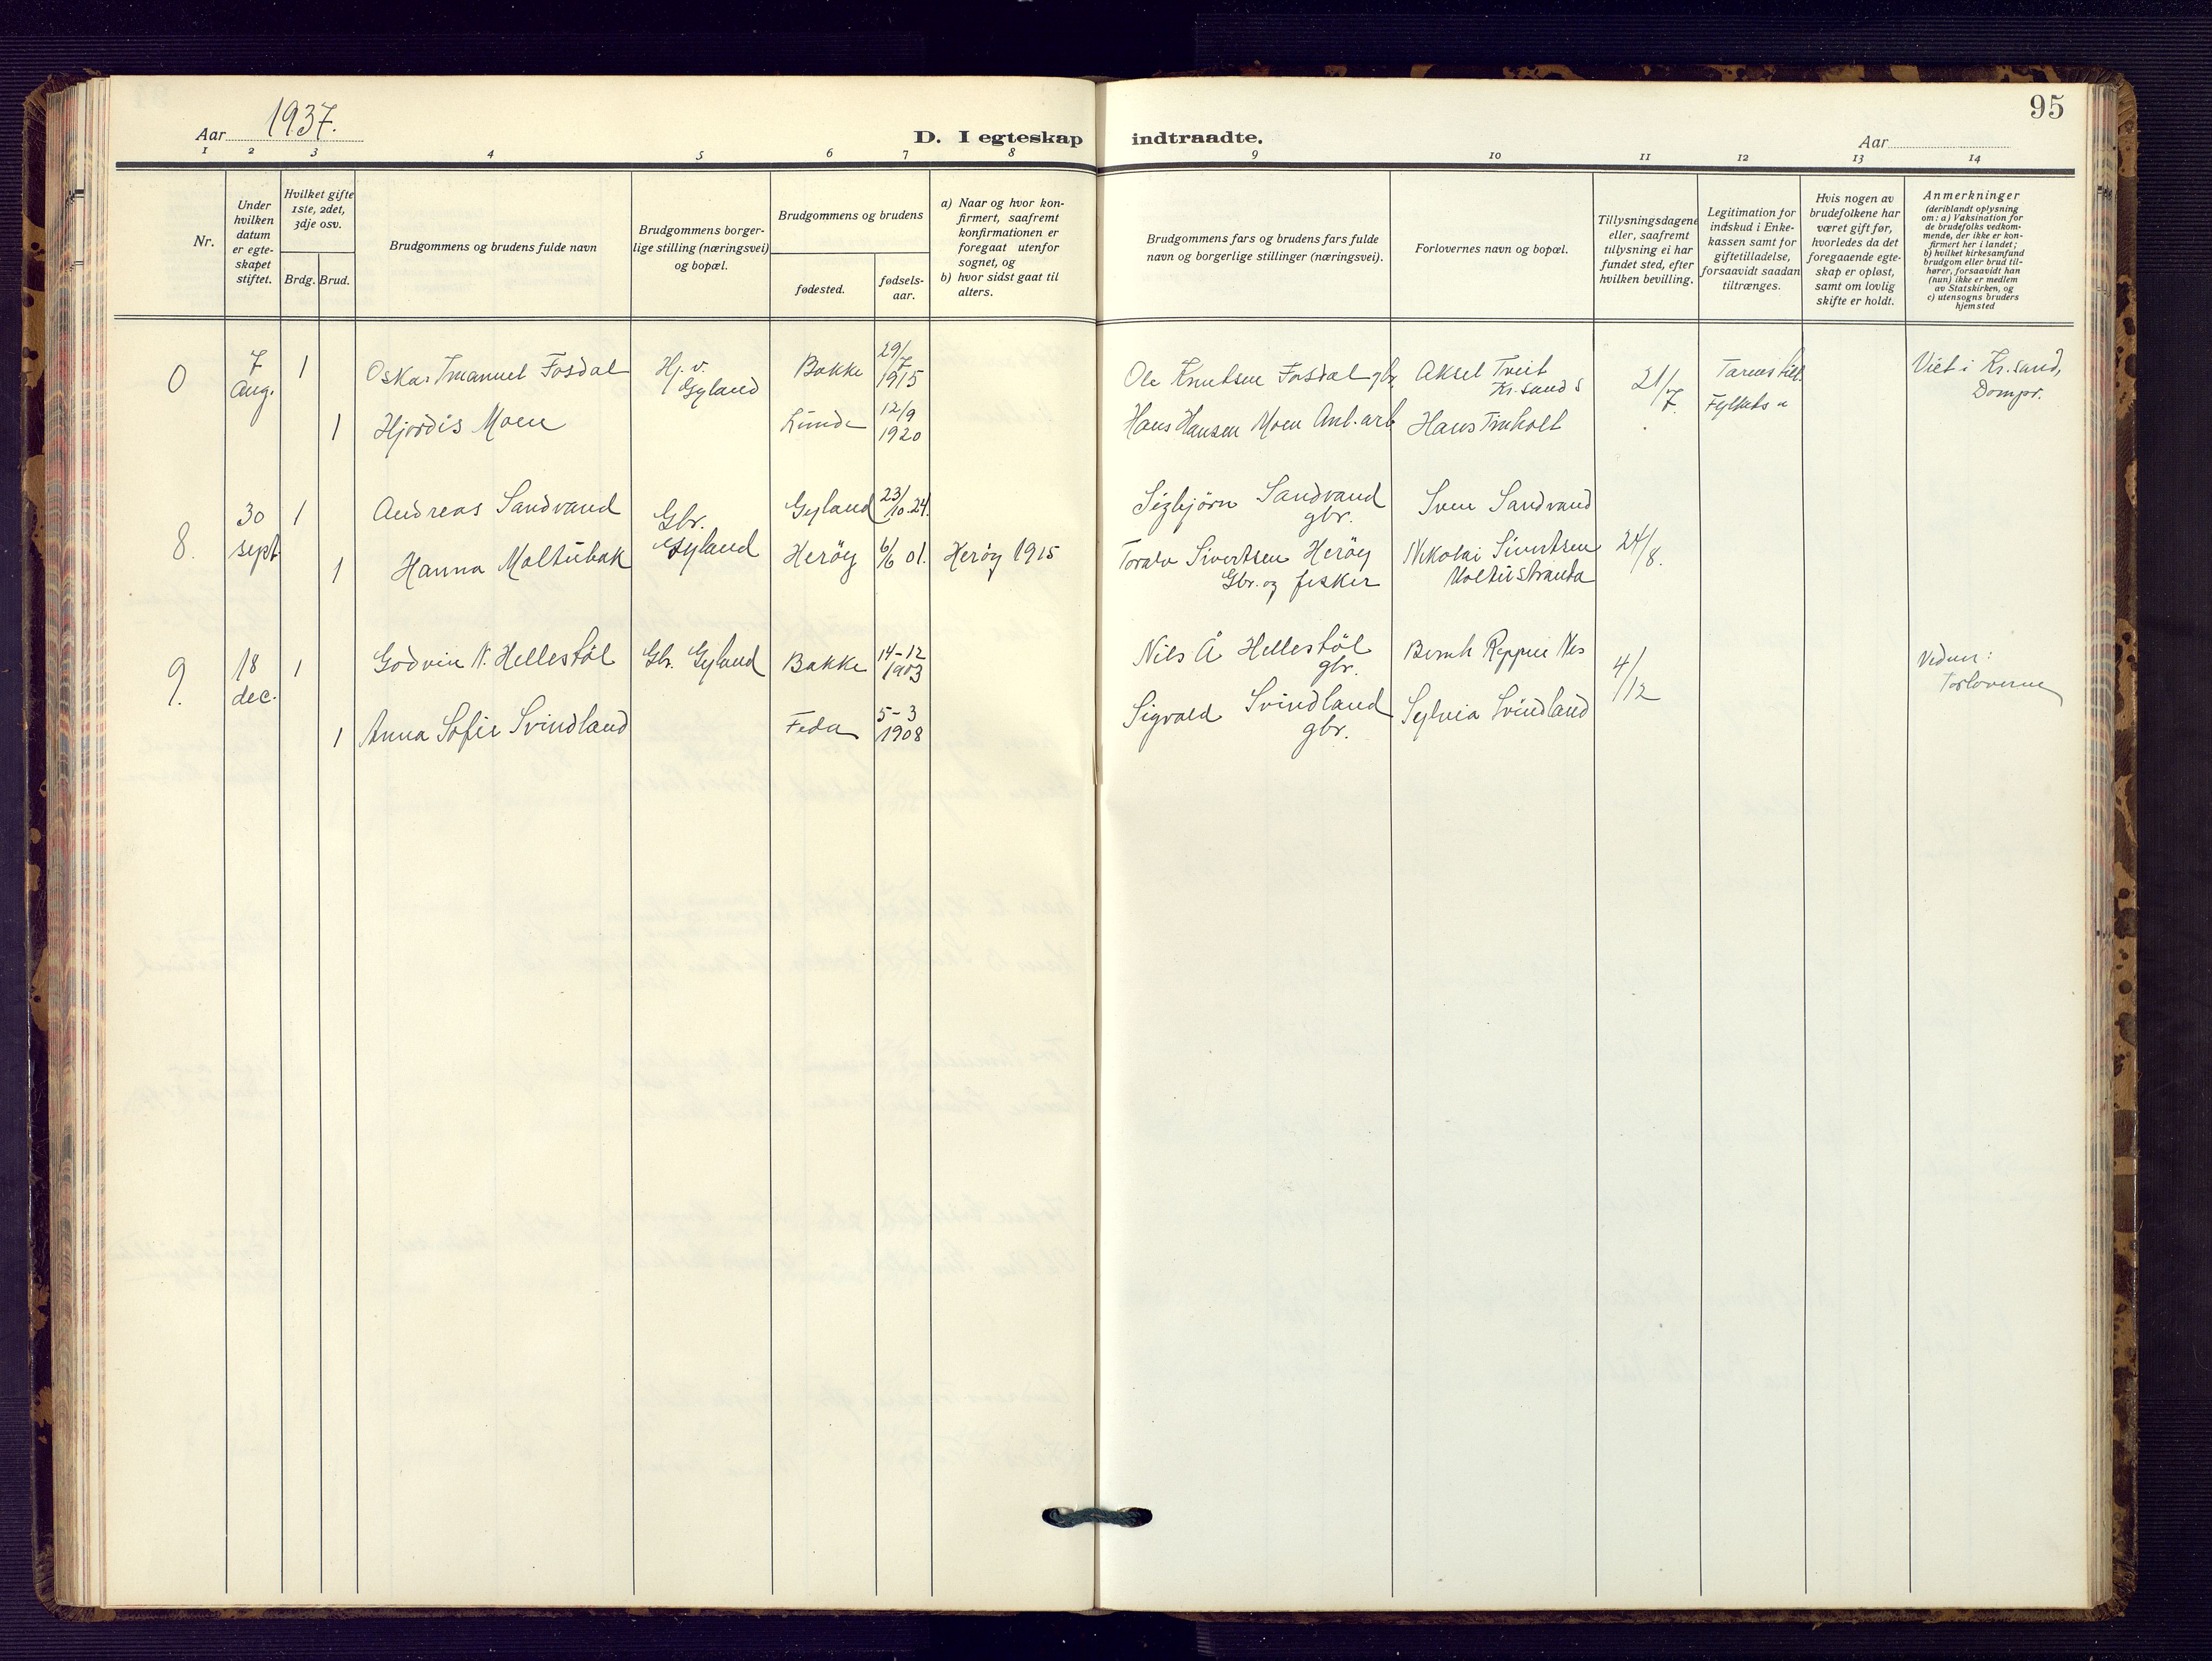 95
Aar 1937.
D. I egteskap indtraadte.
Aar
1 2 3 4 5 6 7 8 9 10 11 12 13 14
Nr.
Under
hvilken
datum
er egte-
skapet
stiftet.
Hvilket gifte
1ste, 2det,
3dje osv.
Brdg. Brud.
Brudgommens og brudens fulde navn
Brudgommens borger-
lige stilling (næringsvei)
og bopæl.
Brudgommens og brudens
fødested.
fødsels-
aar.
a) Naar og hvor kon-
firmert, saafremt
konfirmationen er
foregaat utenfor
sognet, og
b) hvor sidst gaat til
alters.
Brudgommens fars og brudens fars fulde
navn og borgerlige stillinger (næringsvei).
Forlovernes navn og bopæl.
Tillysningsdagene
eller, saafremt
tillysning ei har
fundet sted, efter
hvilken bevilling.
Legitimation for
indskud i Enke-
kassen samt for
giftetilladelse,
forsaavidt saadan
tiltrænges.
Hvis nogen av
brudefolkene har
været gift før,
hvorledes da det
foregaaende egte-
skap er opløst,
samt om lovlig
skifte er holdt.
Anmerkninger
(deriblandt oplysning
om: a) Vaksination for
de brudefolks vedkom-
mende, der ikke er kon-
firmert her i landet;
b) hvilket kirkesamfund
brudgom eller brud til-
hører, forsaavidt han
(hun) ikke er medlem
av Statskirken, og
c) utensogns bruders
hjemsted
0 7 Aug. 1 Oskar Imanuel Fosdal Hj. v. Gyland Bakke 29/7 1915 Ole Knutsen Fosdal gbr. Aksel Tveit Kr.sand S 21/7. Viet i Kr.sand, Dompr.
1 Hjørdis Moen Lunde 12/9 1920 Hans Hansen Moen Anl.arb Hans Fylkets
8. 30 sept. 1 Andreas Sandvand Gbr. Gyland Gyland 23/10.24. Sigbjörn Sandvand gbr. Sven Sandvand 24/8.
1 Hanna Moltubak Heröy 6/6 01. Heröy 1915 Toralv Sivertsen Heröy Gbr. og fisker Nikolai Sivertsen Moltustranda
9. 18 dec. 1 Godvin N. Hellestöl Gbr. Gyland Bakke 14-12 1903 Niels Å Hellestöl gbr. Bernh Reppen Nes 4/12 Vidner: Forloverne
1 Anna Sofie Svindland Feda 5-3 1908 Sigvald Svindland gbr. Sylvia Svindland